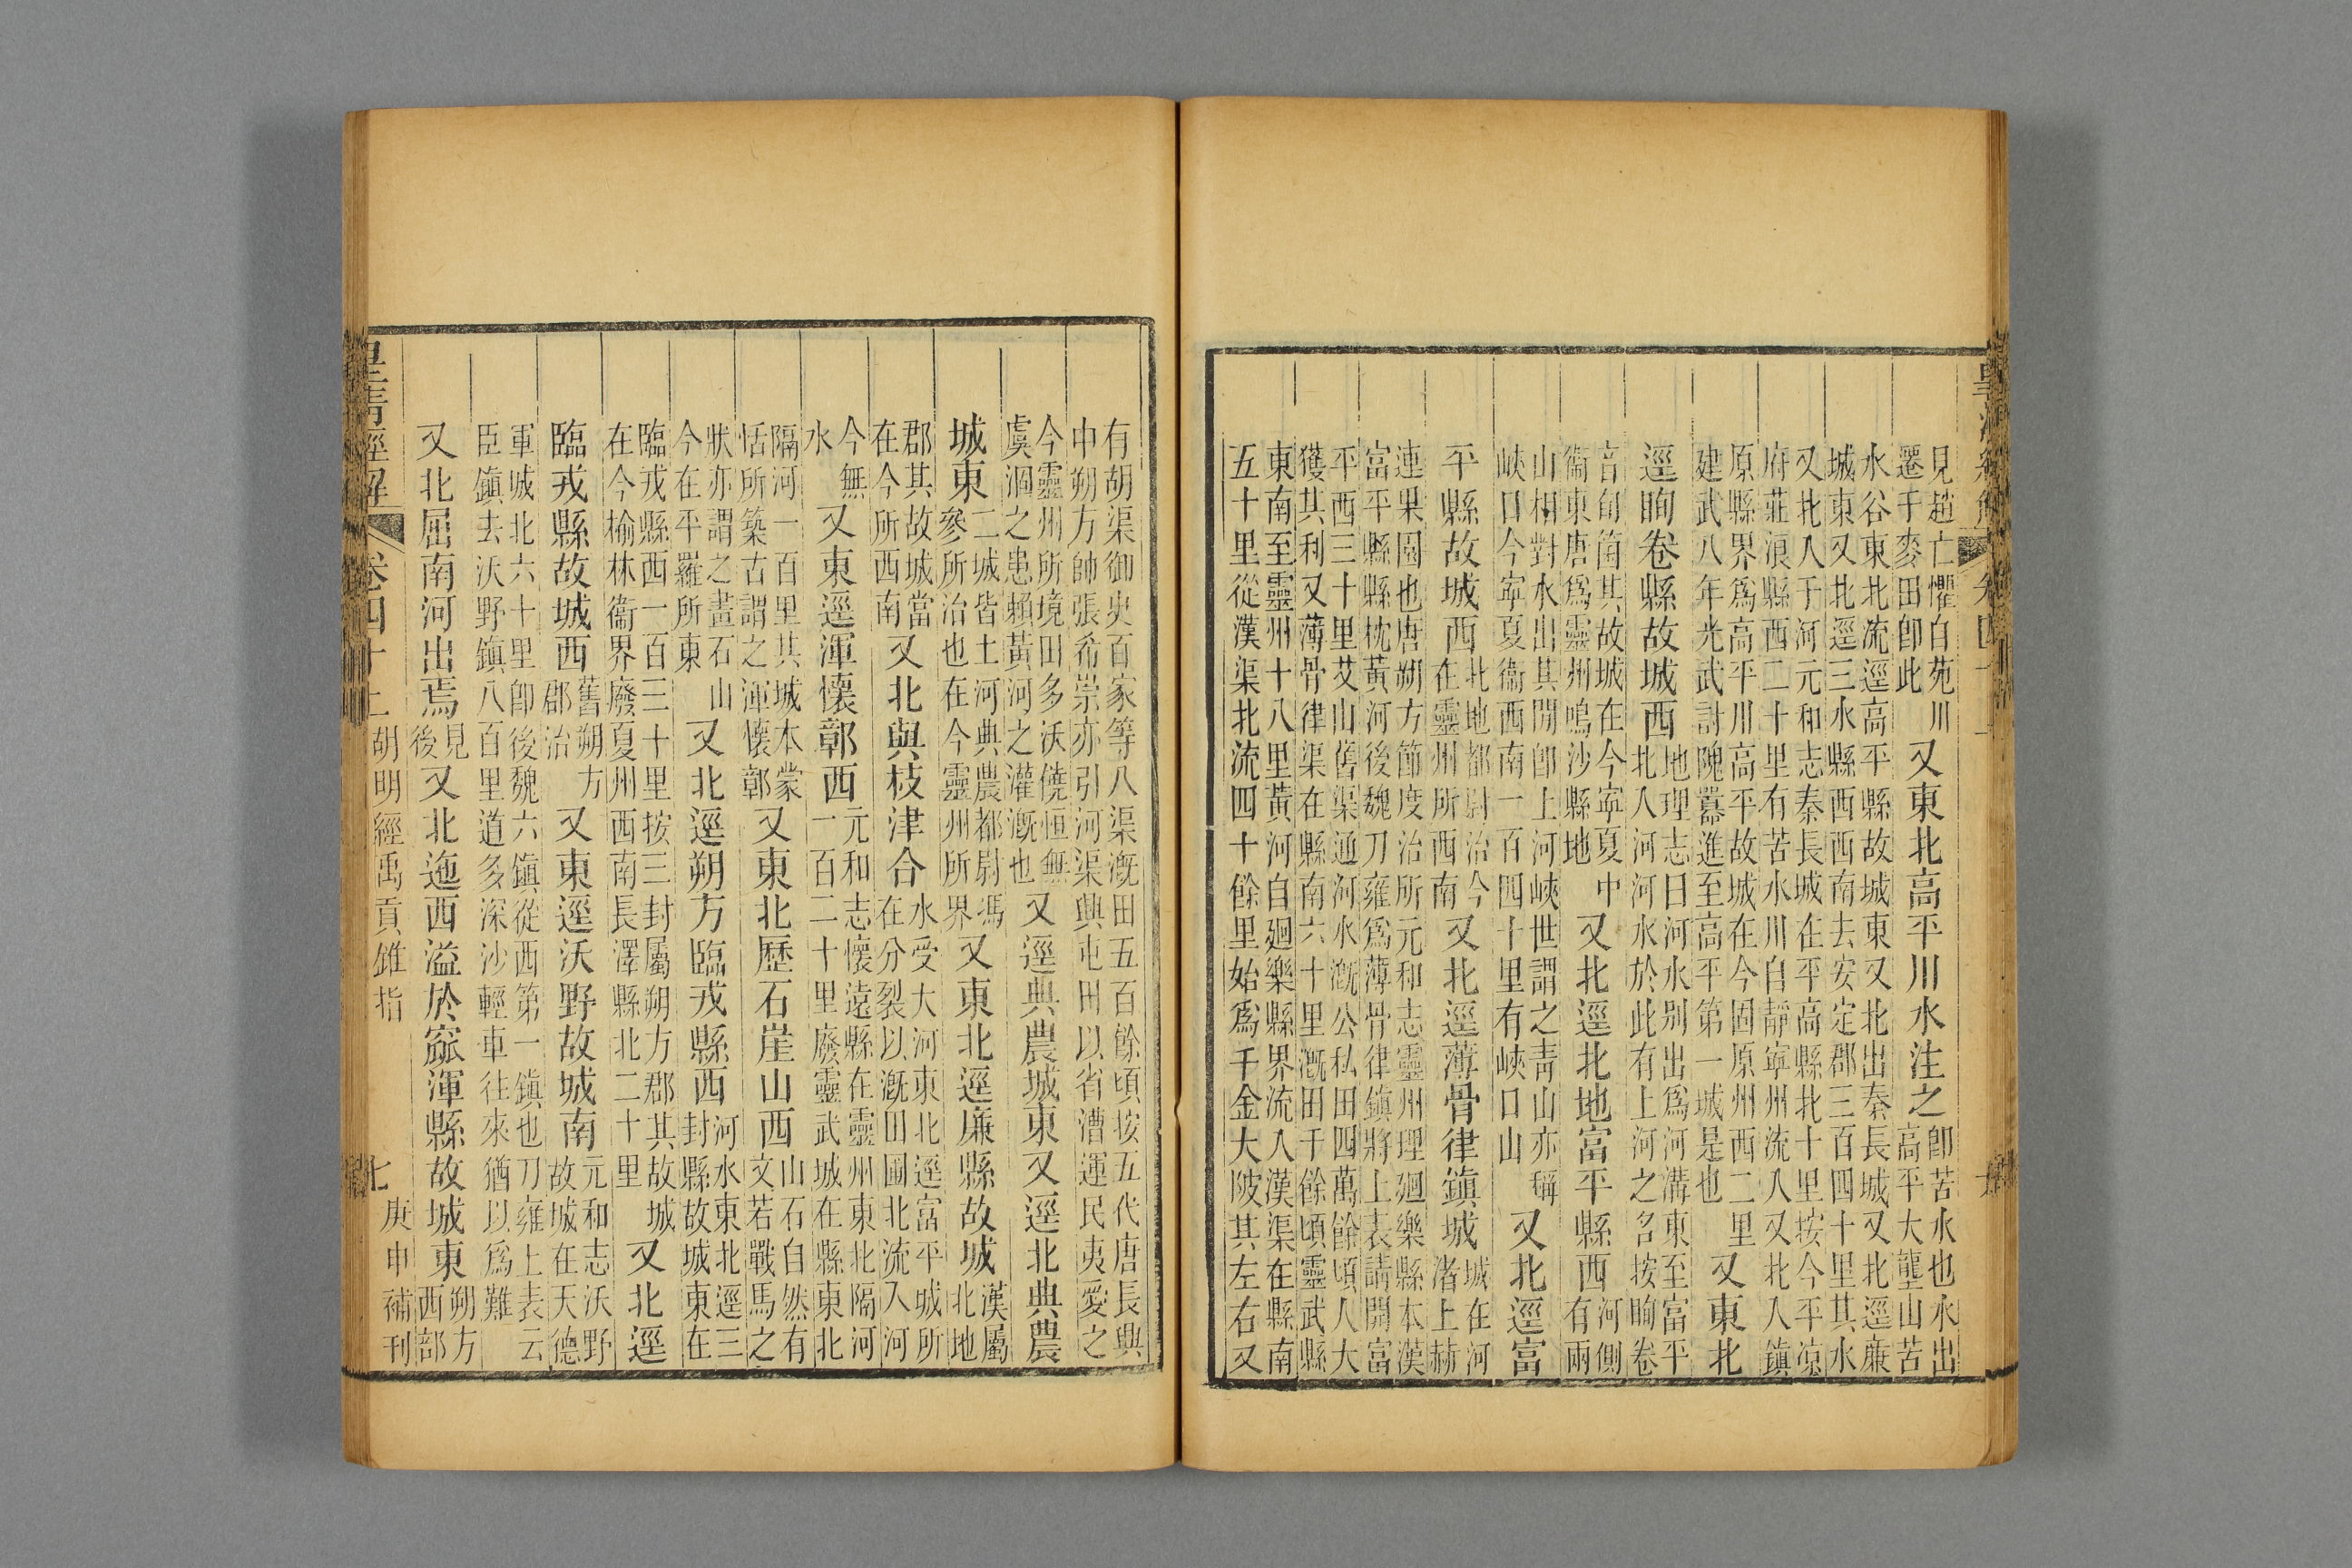 見趙亡懼自苑川
遷千麥田卽此
又東北高平川水注之
卽苦水也水出
高平大壟山苦
水谷東北流逕高平縣故城東又北出秦長城又北逕廉
城東又北逕三水縣西西南去安定郡三百四十里其水
又北入于河元和志秦長城在平高縣北十里按今平凉
府莊浪縣西二十里有苦水川自靜寧州流入又北入鎮
原縣界爲高平川高平故城在今固原州西二里
建武八年光武討隗囂進至高平第一城是也
又東北
逕眴卷縣故城西
地理志曰河水别出爲河溝東至富平
北入河河水於此有上河之名按眴卷
音旬箘其故城在今寧夏中
衞東唐爲靈州鳴沙縣地
又北逕北地富平縣西
河側
有兩
山相對水出其閒卽上河峽世謂之靑山亦稱
峽口今寧夏衞西南一百四十里有峽口山
又北逕富
平縣故城西
北地都尉治今
在靈州所西南
又北逕薄骨律鎮城
城在河
渚上赫
連果園也唐朔方節度治所元和志靈州理迴樂縣本漢
富平縣縣枕黃河後魏刀雍爲薄骨律鎮將上表請開富
平西三十里艾山舊渠通河水漑公私田四萬餘頃人大
獲其利又薄骨律渠在縣南六十里漑田千餘頃靈武縣
東南至靈州十八里黃河自迴樂縣界流入漢渠在縣南
五十里從漢渠北流四十餘里始爲千金大陂其左右又
有胡渠御史百家等八渠漑田五百餘頃按五代唐長興
中朔方帥張希崇亦引河渠興屯田以省漕運民夷愛之
今靈州所境田多沃饒恒無
虞涸之患賴黃河之灌漑也
又逕典農城東又逕北典農
城東
二城皆土河典農都尉馮
參所治也在今靈州所界
又東北逕廉縣故城
漢屬
北地
郡其故城當
在今所西南
又北與枝津合
水受大河東北逕富平城所
在分裂以漑田圃北流入河
今無
水
又東逕渾懷鄣西
元和志懷遠縣在靈州東北隔河
一百二十里廢靈武城在縣東北
隔河一百里其城本蒙
恬所築古謂之渾懷鄣
又東北歷石崖山西
山石自然有
文若戰馬之
狀亦謂之畫石山
今在平羅所東
又北逕朔方臨戎縣西
河水東北逕三
封縣故城東在
臨戎縣西一百三十里按三封屬朔方郡其故城
在今榆林衞界廢夏州西南長澤縣北二十里
又北逕
臨戎縣故城西
舊朔方
郡治
又東逕沃野故城南
元和志沃野
故城在天德
軍城北六十里卽後魏六鎮從西第一鎮也刀雍上表云
臣鎮去沃野鎮八百里道多深沙輕車往來猶以爲難
又北屈南河出焉
見
後
又北迤西溢於窳渾縣故城東
朔方
西部
皇淸經解
卷四十上
胡明經禹貢錐指
七
庚申補刊